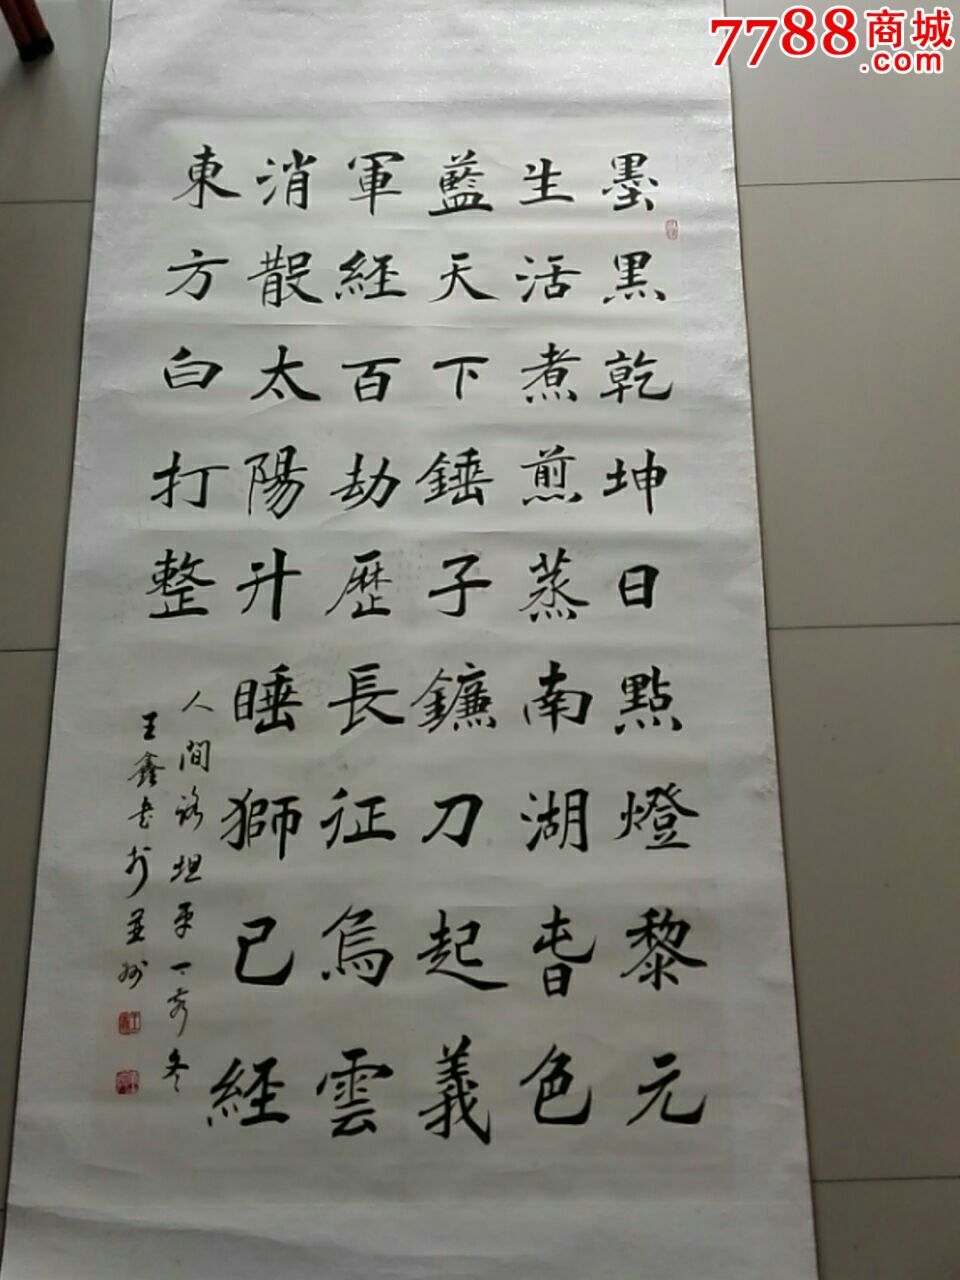 7788商城
.com
墨黑乾坤日點燈黎元
生活煮煎蒸南湖春色
藍天下錘子鐮刀起義
軍經百劫歷長征烏雲
消散太陽升睡獅已經
東方白打整
人間路坦平 冬
王鑫書於並州